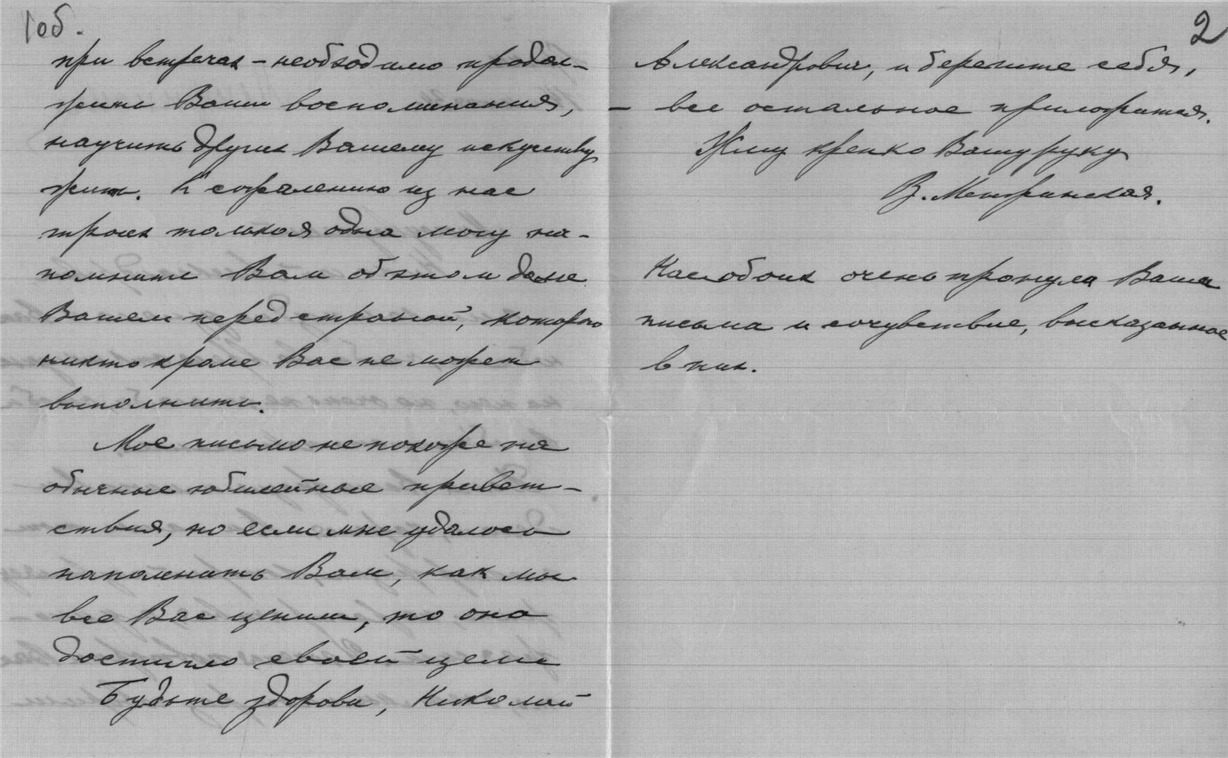 1об.
при встречах – необходимо продол-
жить Ваши воспоминания,
научить других Вашему искусству
жить. К сожалению из нас
троих только я одна могу на-
помнить Вам об этом долге
Вашем перед страной, которого
никто кроме Вас не может
выполнить.
Мое письмо не похоже на
обычные юбилейные привет-
ствия, но если мне удалось
напомнить Вам, как мы
все Вас ценим, то оно
достигло своей цели
Будьте здоровы, Николай
2
Александрович, и берегите себя,
– все остальное приложится.
Жму крепко Вашу руку
В. Менжинская.
Нас обоих очень тронули Ваши
письма и сочувствие, высказанное
в них.